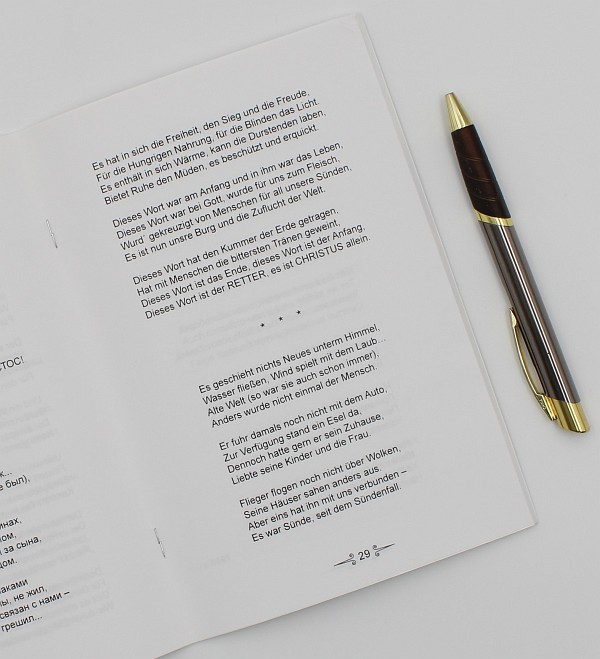 СТОС!
ж...
е был),
инах,
ом,
і за сына,
дом.
наками
лы, не жил,
связан с нами –
грешил...
Es hat in sich die Freiheit, den Sieg und die Freude,
Für die Hungrigen Nahrung, für die Blinden das Licht.
Es enthält in sich Wärme, kann die Durstenden laben,
Bietet Ruhe den Müden, es beschützt und erquickt.
Dieses Wort war am Anfang und in ihm war das Leben,
Dieses Wort war bei Gott, wurde für uns zum Fleisch,
Wurd´ gekreuzigt von Menschen für all unsre Sünden,
Es ist nun unsre Burg und die Zuflucht der Welt.
Dieses Wort hat den Kummer der Erde getragen,
Hat mit Menschen die bittersten Tränen geweint,
Dieses Wort ist das Ende, dieses Wort ist der Anfang,
Dieses Wort ist der RETTER, es ist CHRISTUS allein.
* * *
Es geschieht nichts Neues unterm Himmel,
Wasser fließen, Wind spielt mit dem Laub...
Alte Welt (so war sie auch schon immer),
Anders wurde nicht einmal der Mensch.
Er fuhr damals noch nicht mit dem Auto,
Zur Verfügung stand ein Esel da,
Dennoch hatte gern er sein Zuhause,
Liebte seine Kinder und die Frau.
Flieger flogen noch nicht über Wolken,
Seine Häuser sahen anders aus.
Aber eins hat ihn mit uns verbunden –
Es war Sünde, seit dem Sündenfall.
29